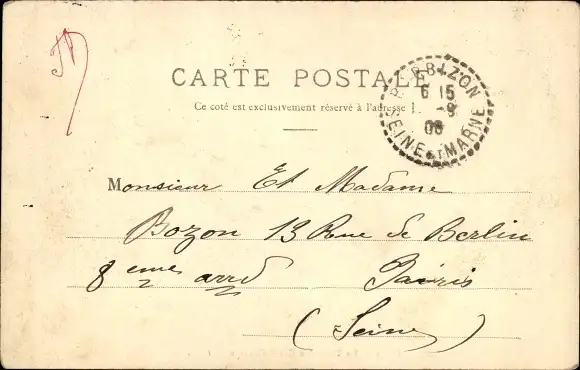 CARTE POSTALE
Ce coté est exclusivement réservé à l'adresse
BARBIZON
6 15
-9
06
SEINE ET MARNE
Monsieur Et Madame
Bozon 13 Rue de Berlin
8 eme arrd Paris
(Seine)